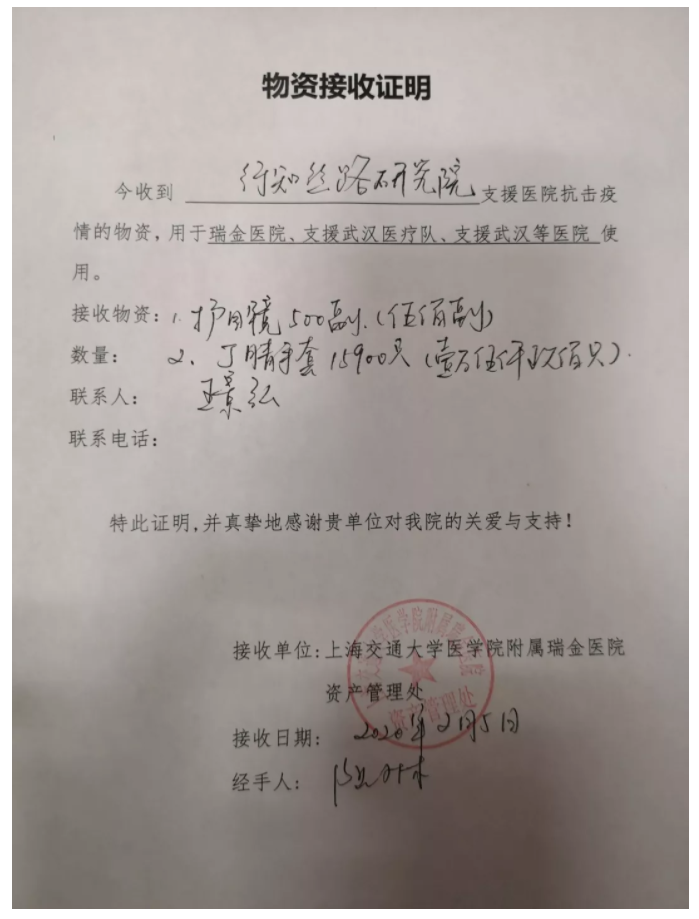 物资接收证明
今收到 行知丝路研究院 支援医院抗击疫
情的物资，用于瑞金医院、支援武汉医疗队、支援武汉等医院 使
用。
接收物资：1. 护目镜500副.（伍佰副）
数量： 2、丁腈手套15900只（壹万伍仟玖佰只）.
联系人： 王景弘
联系电话：
特此证明,并真挚地感谢贵单位对我院的关爱与支持！
接收单位：上海交通大学医学院附属瑞金医院
资产管理处
接收日期： 2020年2月5日
经手人：
资产管理处